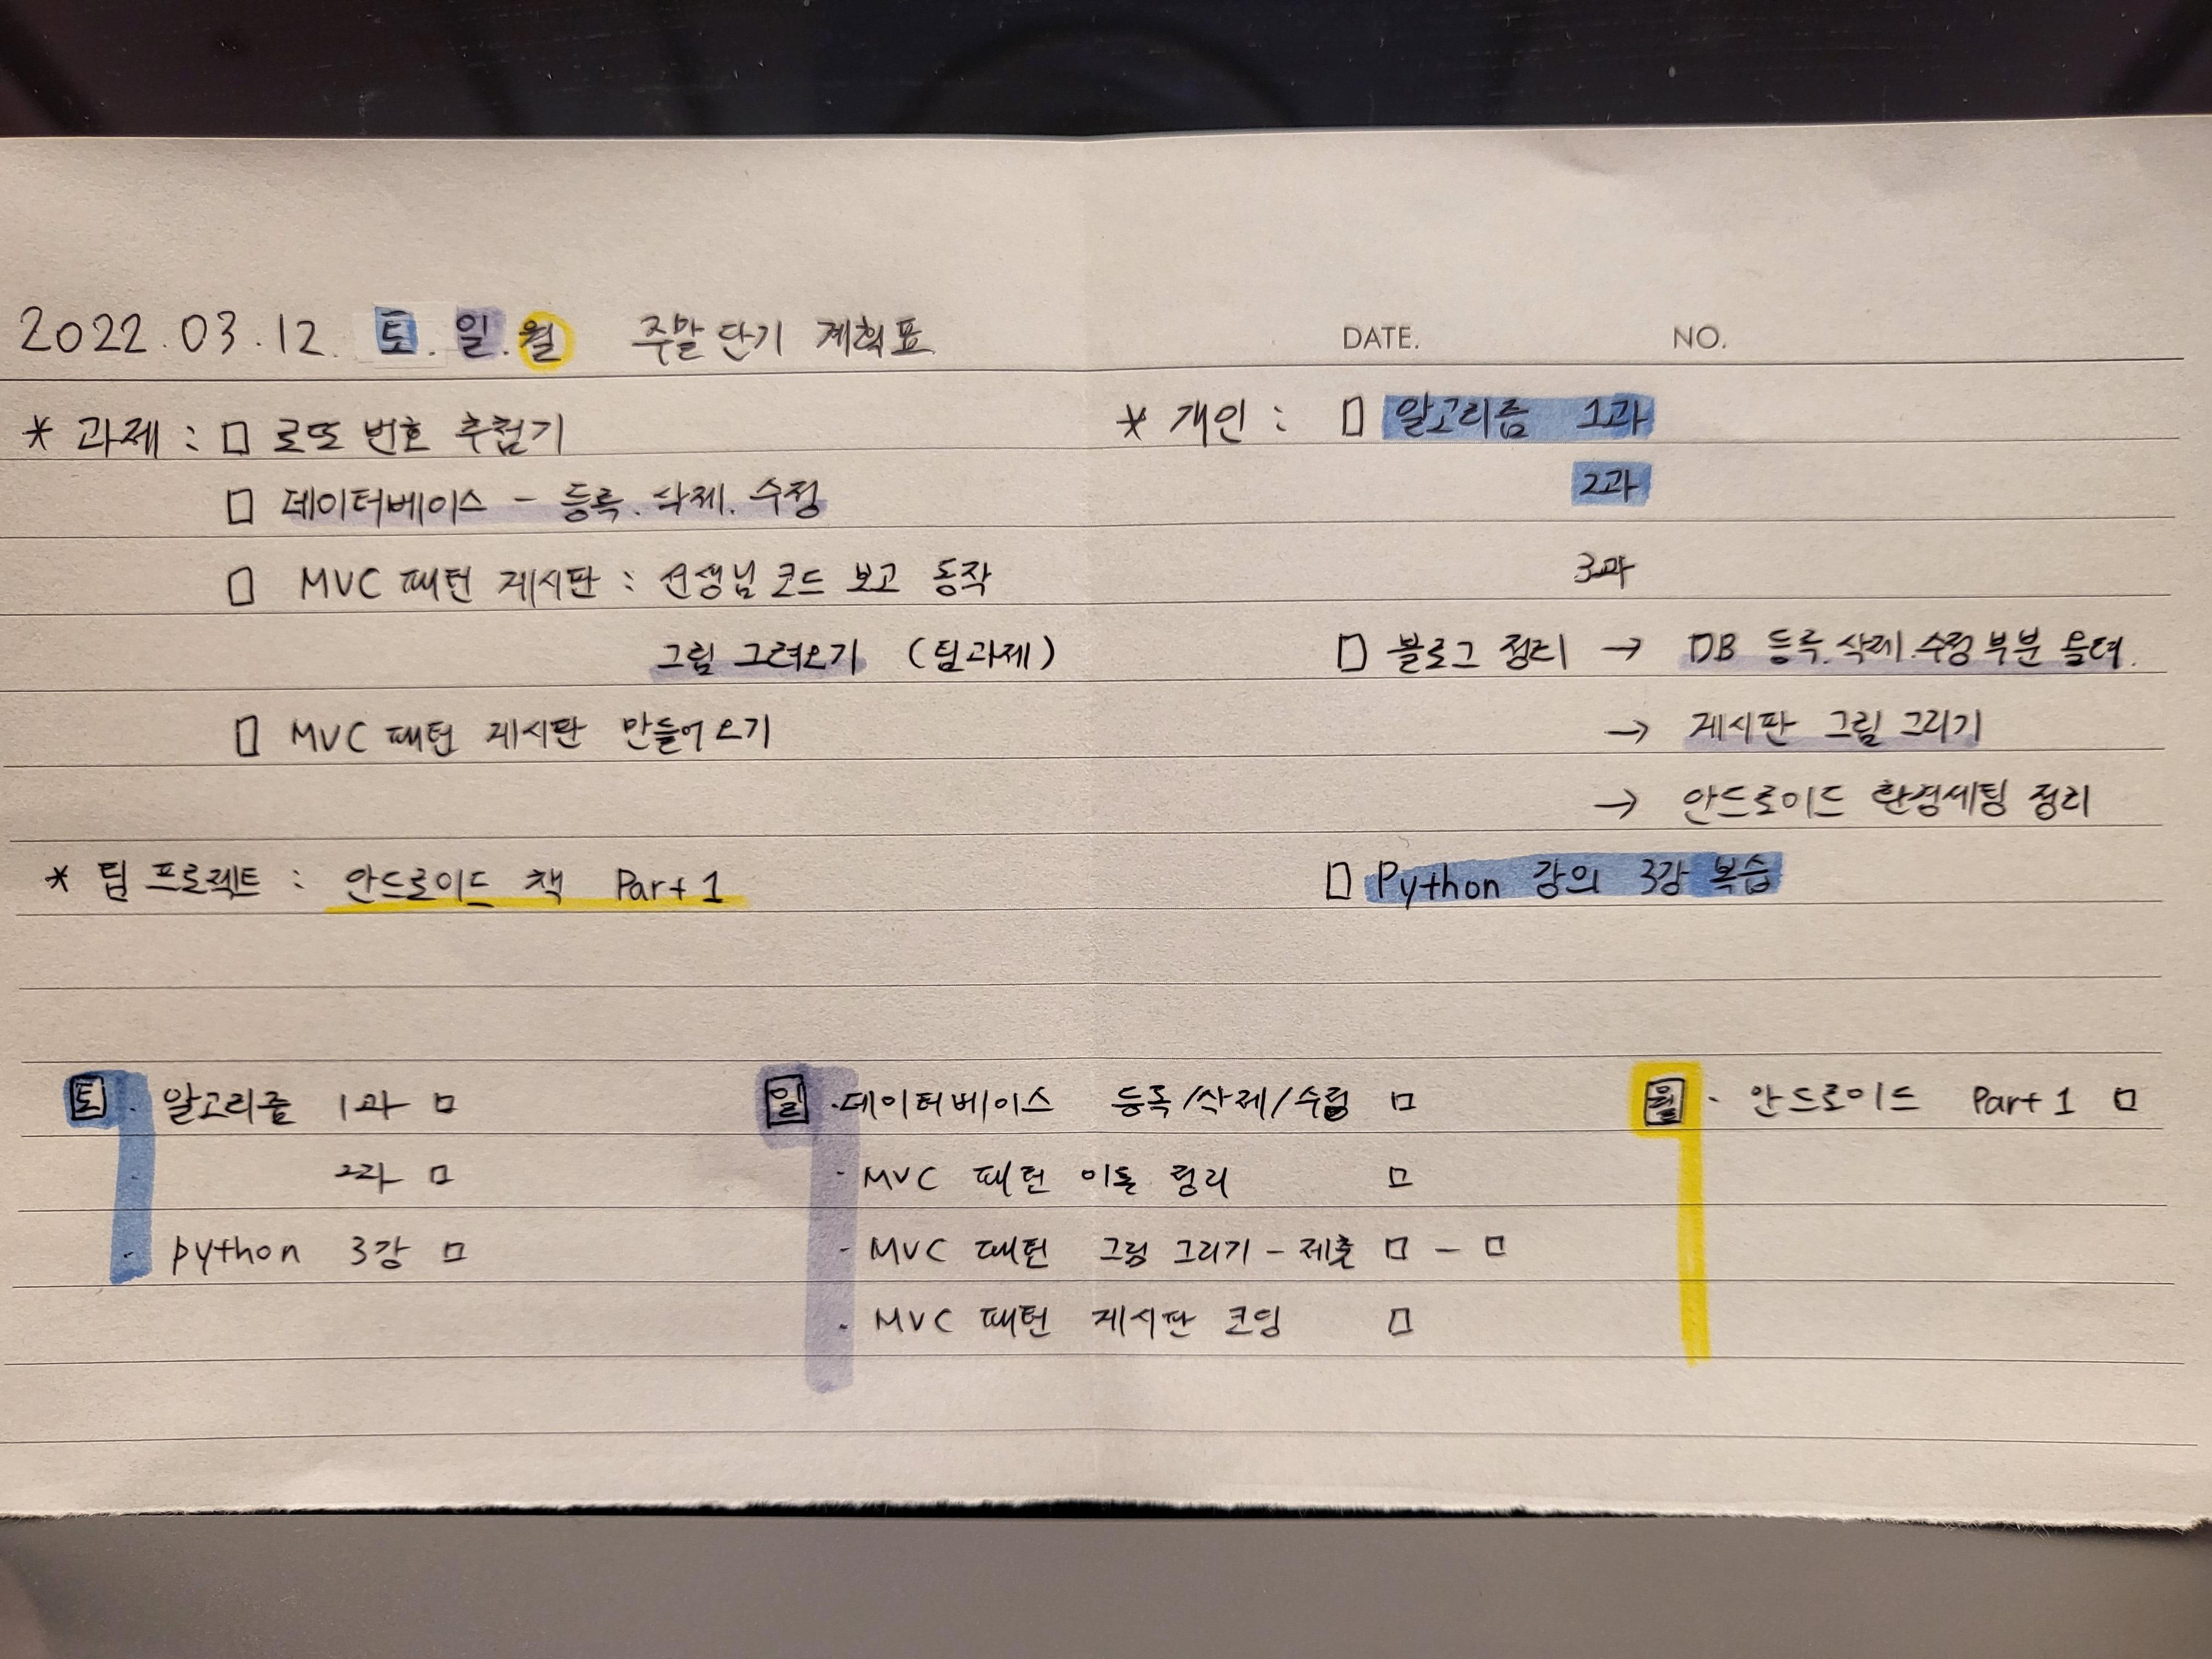 2022.03.12. 토. 일. 월 주말 단기 계획표
DATE. NO.
* 과제 : □ 로또 번호 추첨기
□ 데이터베이스 - 등록. 삭제. 수정
□ MVC 패턴 게시판 : 선생님 코드 보고 동작
그림 그려오기 (팀과제)
□ MVC 패턴 게시판 만들어오기
* 팀 프로젝트 : 안드로이드 책 Part 1
* 개인 : □ 알고리즘 1과
2과
3과
□ 블로그 정리 → DB 등록.삭제.수정 부분 올려.
→ 게시판 그림 그리기
→ 안드로이드 환경세팅 정리
□ Python 강의 3강 복습
토 · 알고리즘 1과 □
· 2과 □
· python 3강 □
일 · 데이터베이스 등록/삭제/수정 □
- MVC 패턴 이론 정리 □
- MVC 패턴 그림 그리기 - 제출 □ - □
· MVC 패턴 게시판 코딩 □
월 · 안드로이드 Part 1 □